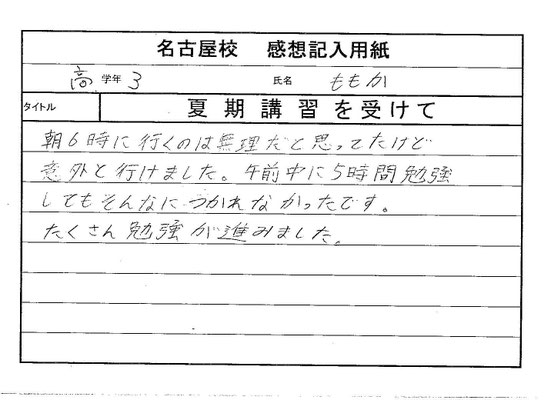 名古屋校 感想記入用紙
高 学年 3 氏名 ももか
タイトル 夏期講習を受けて
朝6時に行くのは無理だと思ってたけど
意外と行けました。午前中に5時間勉強
してもそんなにつかれなかったです。
たくさん勉強が進みました。